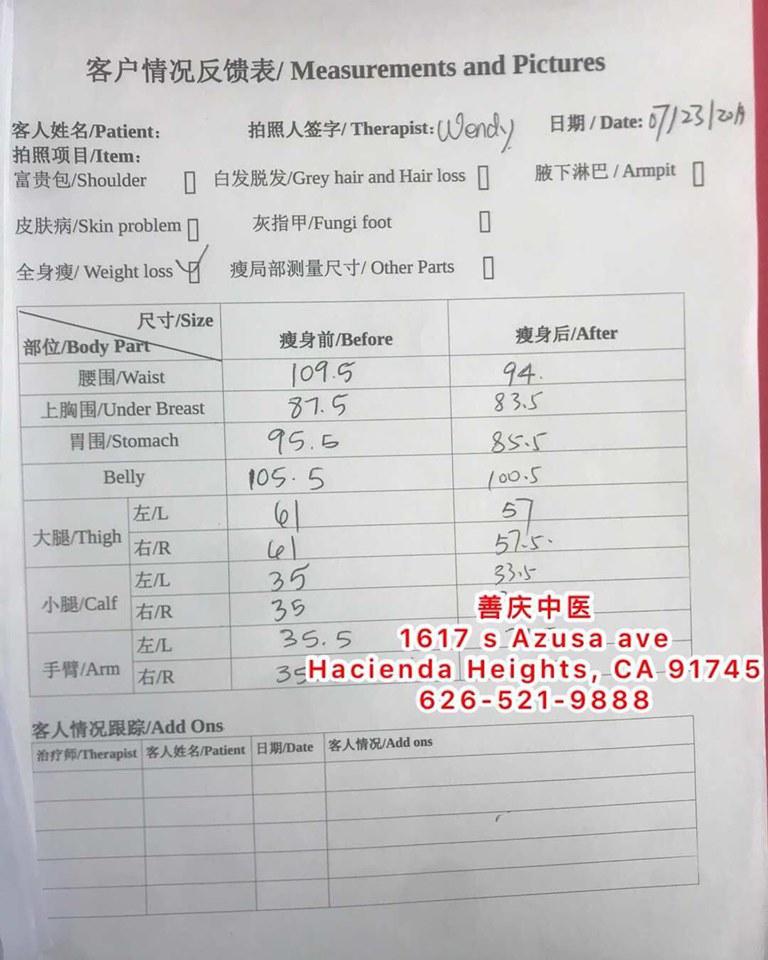 客户情况反馈表/ Measurements and Pictures
客人姓名/Patient: 拍照人签字/ Therapist: Wendy 日期 / Date: 07/23/2019
拍照项目/Item:
富贵包/Shoulder 白发脱发/Grey hair and Hair loss 腋下淋巴 / Armpit
皮肤病/Skin problem 灰指甲/Fungi foot
全身瘦/ Weight loss 瘦局部测量尺寸/ Other Parts
尺寸/Size
部位/Body Part 瘦身前/Before 瘦身后/After
腰围/Waist 109.5 94.
上胸围/Under Breast 87.5 83.5
胃围/Stomach 95.5 85.5
Belly 105.5 100.5
大腿/Thigh 左/L 61 57
右/R 61 57.5.
小腿/Calf 左/L 35 33.5
右/R 35
手臂/Arm 左/L 35.5
右/R 35
善庆中医
1617 s Azusa ave
Hacienda Heights, CA 91745
626-521-9888
客人情况跟踪/Add Ons
治疗师/Therapist 客人姓名/Patient 日期/Date 客人情况/Add ons